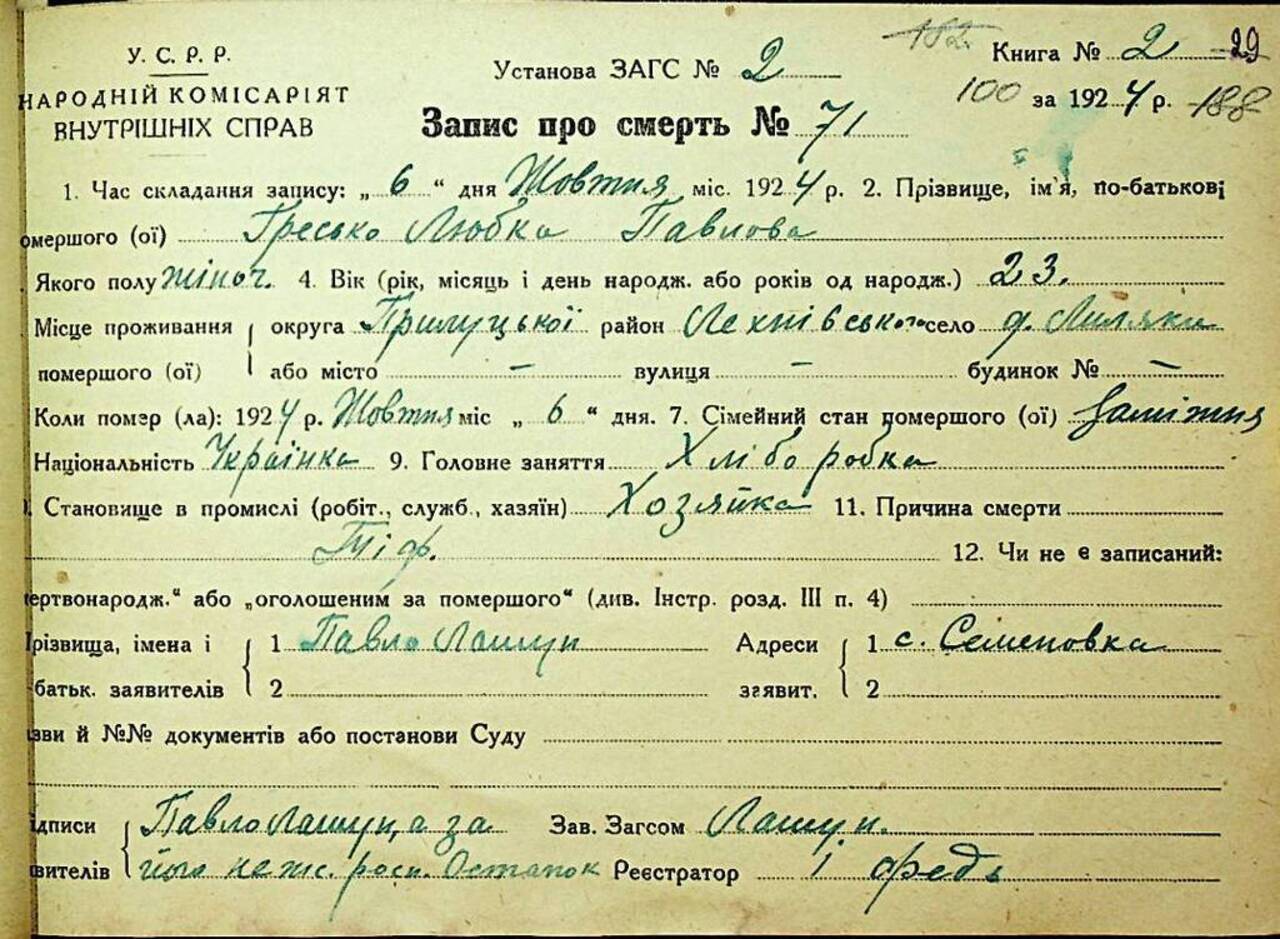 У. С. Р. Р.
НАРОДНІЙ КОМІСАРІЯТ
ВНУТРІШНІХ СПРАВ
Установа ЗАГС № 2
Запис про смерть № 71
182 Книга № 2 29
100 за 1924 р. 188
1. Час складання запису: „ 6 “ дня Жовтня міс. 1924 р. 2. Прізвище, ім'я, по-батькові
омершого (ої) Гресько Любка Павлова
Якого полу жіноч. 4. Вік (рік, місяць і день народж. або років од народж.) 23.
Місце проживання округа Прилуцької район село
помершого (ої) або місто — вулиця — будинок № —
Коли помэр (ла): 1924 р. Жовтня міс „ 6 “ дня. 7. Сімейний стан помершого (ої) Заміжня
Національність Українка 9. Головне заняття Хліборобка
Становище в промислі (робіт., служб., хазяїн) Хозяйка 11. Причина смерти
Тіф. 12. Чи не є записаний:
ертвонародж.“ або „оголошеним за помершого“ (див. Інстр. розд. III п. 4)
різвища, імена і 1 Павло Лашун Адреси 1 с. Семеновка
батьк. заявителів 2 заявит. 2
зви й №№ документів або постанови Суду
ідписи Павло Лашун, а за Зав. Загсом Лашун.
вителів його неж. росп. Остапок Реєстратор